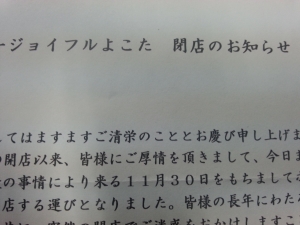 ージョイフルよこた　閉店のお知らせ
してはますますご清栄のこととお慶び申し上げま
の開店以来、皆様にご厚情を頂きまして、今日ま
の事情により来る11月30日をもちまして
店する運びとなりました。皆様の長年にわた
閉店でご迷惑をおかけしますこ